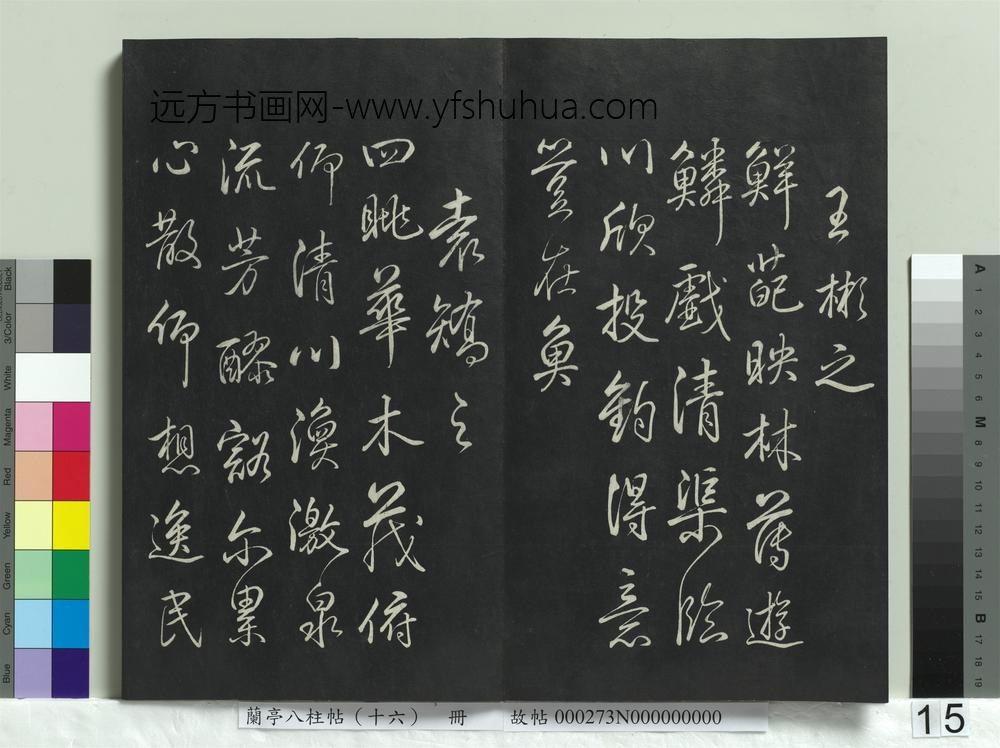 远方书画网-www.yfshuhua.com
王彬之
鮮葩映林薄遊
鱗戲清渠臨
川欣投釣得意
豈在魚
袁嶠之
四眺華木茂俯
仰清川渙激泉
流芳醪豁尔累
心散仰想逸民
蘭亭八柱帖（十六） 冊 故帖 000273N000000000
15
Black
3/Color
White
Magenta
Red
Yellow
Green
Cyan
Blue
A 1 2 3 4 5 6 M 8 9 10 11 12 13 14 15 B 17 18 19